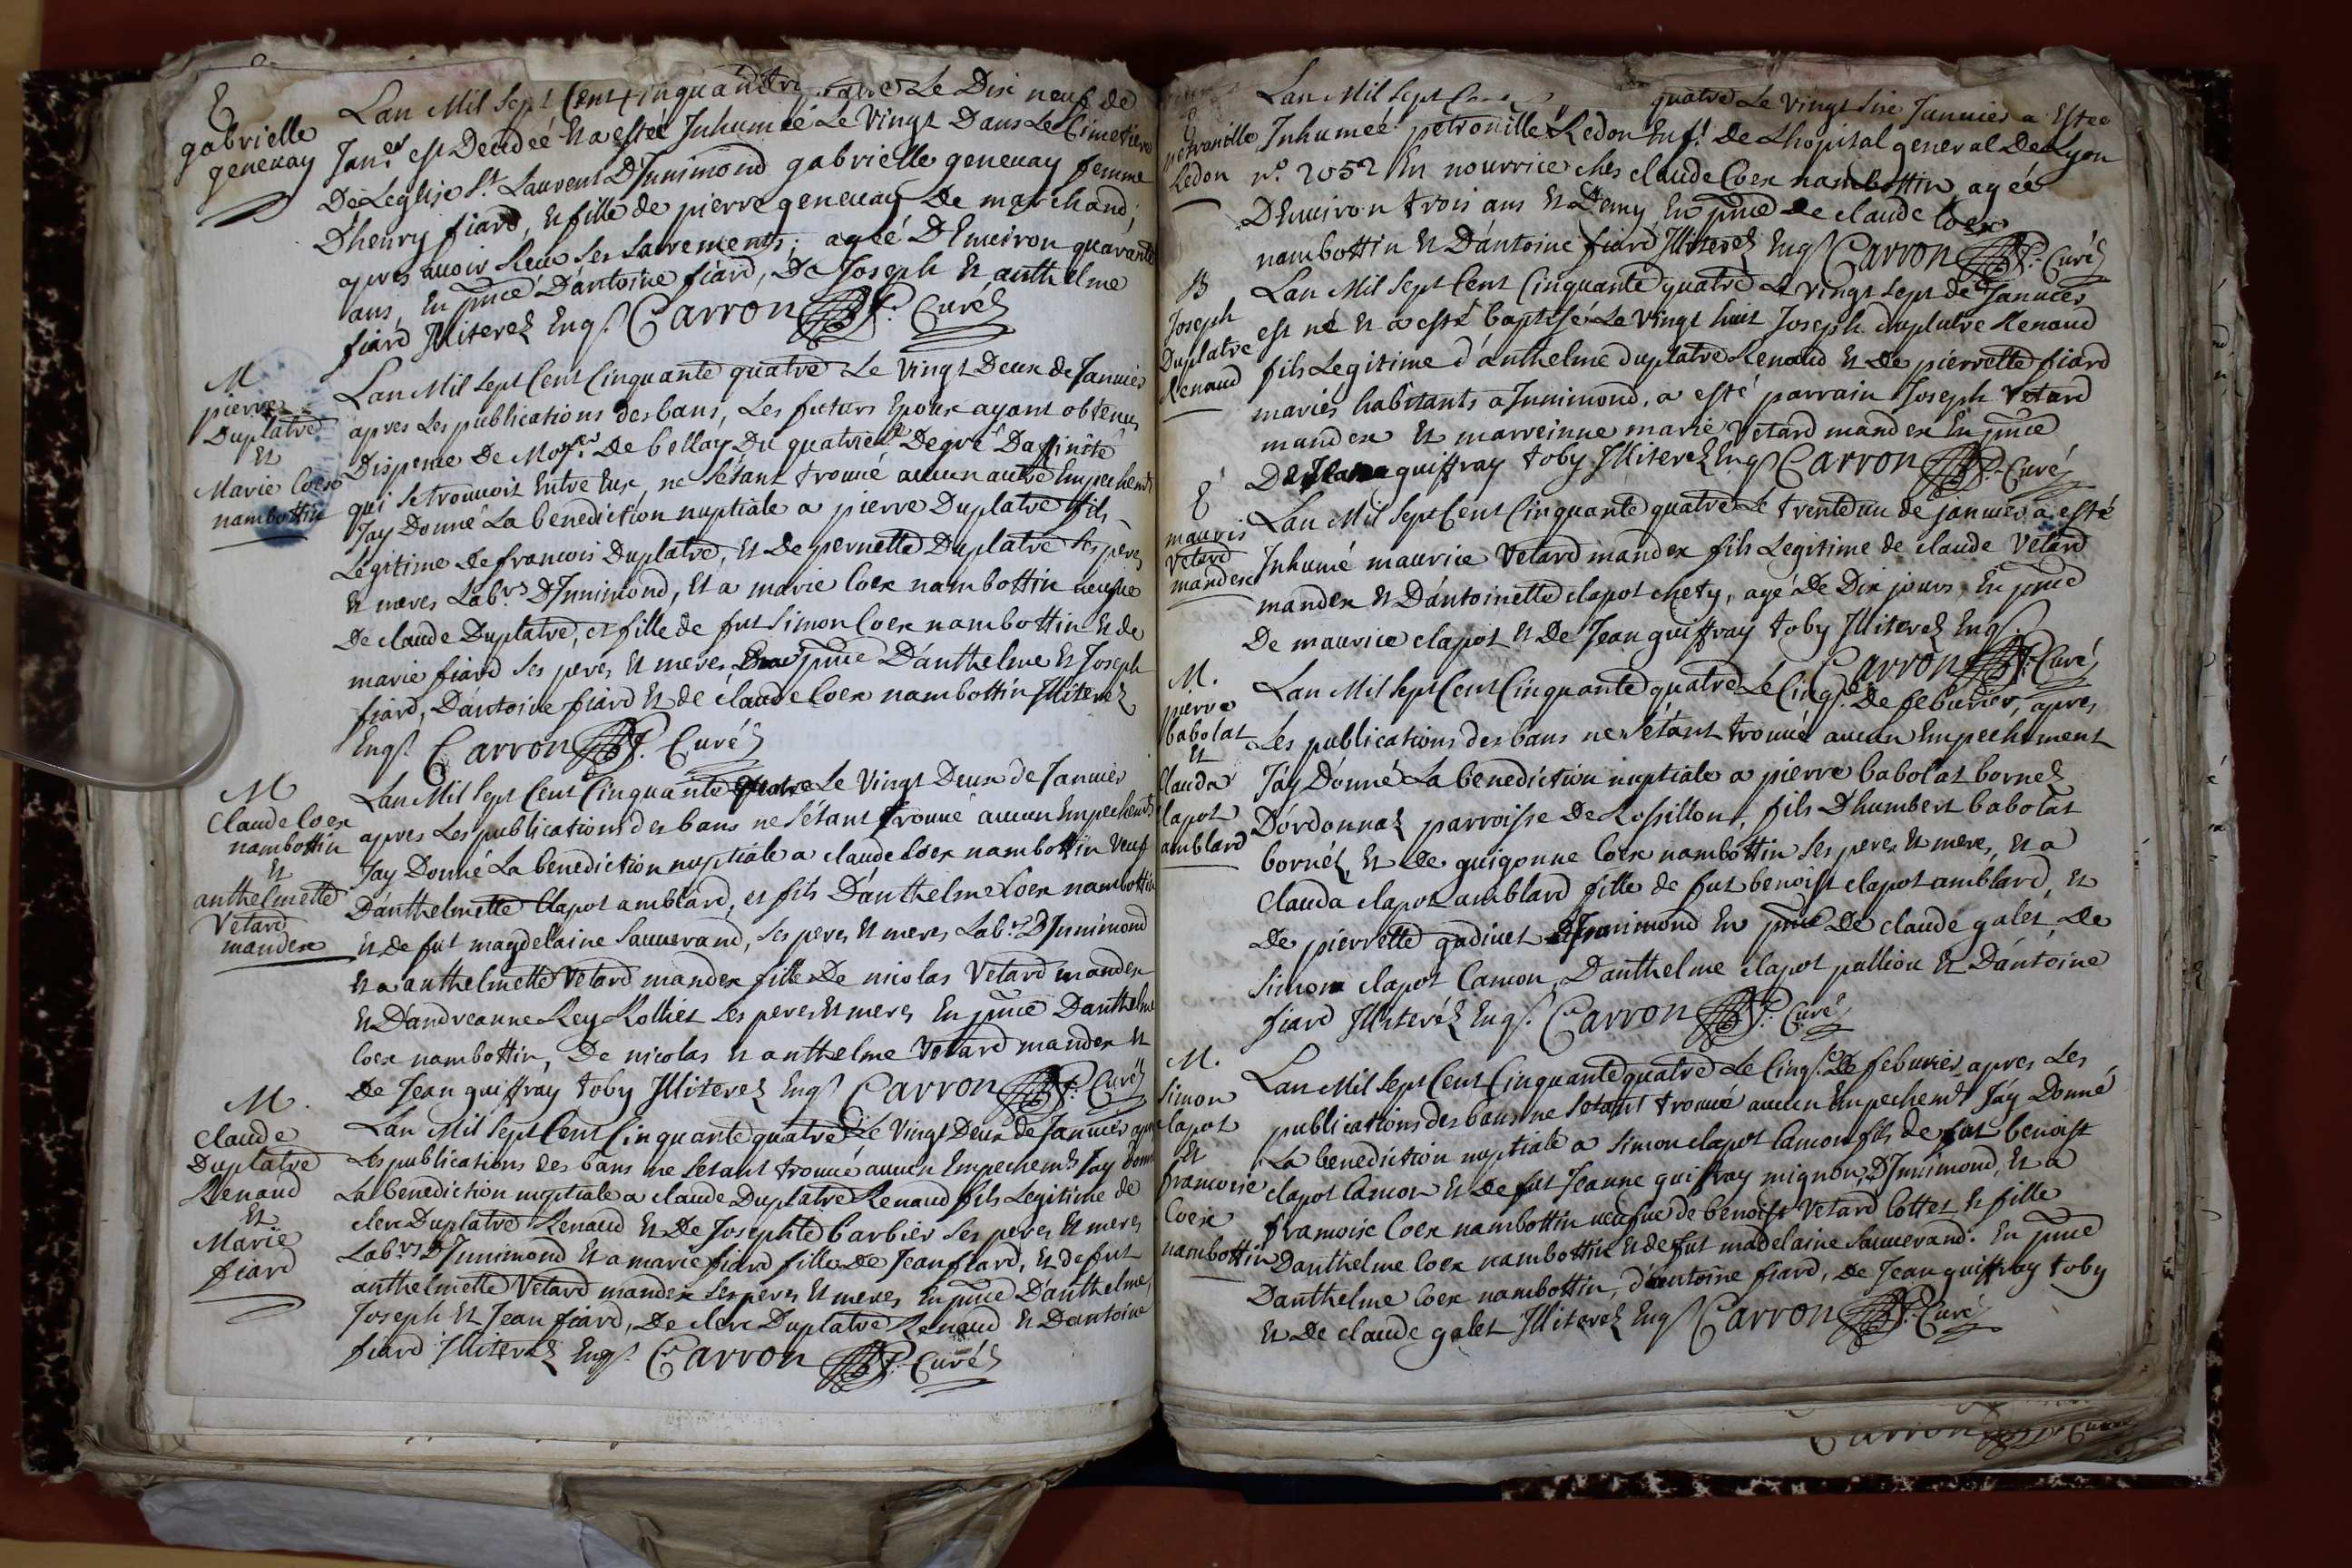 E
gabrielle
genevay
Lan Mil Sept Cent Cinquante quatre Le Dix neuf de
Janer est Decedeé Et a estéé Inhumeé Le Vingt Dans Le Cimetiere
De Leglise St Laurent D'Innimond gabrielle genevay femme
D'henry fiard, Et fille de pierre genevay De marchand,
apres avoir Receu Ses Sacrements, ageé D'Environ quarante
ans, En pnce D'antoine fiard, De Joseph Et anthelme
fiard Illiterez Enqs. Carron P. Curéz
M
pierre
Duplatre
Et
Marie Coex
nambottin
Lan Mil Sept Cent Cinquante quatre Le Vingt Deux de Janvier
apres Les publications des bans, Les futurs Epoux ayant obtenus
Dispense De Mgr. De bellay Du quatrieme Degré D'affinité
qui Se trouvoit Entre Eux, ne S'étant trouvé aucun autre Empechemt
Jay Donné La benediction nuptiale a pierre Duplatre fils
Legitime De francois Duplatre, Et De pernette Duplatre Ses peres
Et meres Labrs D'Innimond, Et a marie Coex nambottin veufue
De claude Duplatre, et fille de fut Simon Coex nambottin Et de
marie fiard Ses peres Et meres, En pnce D'anthelme Et Joseph
fiard, D'antoine fiard Et de claude Coex nambottin Illiterez
Enqs. Carron P. Curéz
M
Claude Coex
nambottin
Et
anthelmette
Vetard
mandex
Lan Mil Sept Cent Cinquante quatre Le Vingt Deux de Janvier
apres Les publications des bans ne S'étant trouvé aucun Empechemt
Jay Donné La benediction nuptiale a claude Coex nambottin Veuf
D'anthelmette Clapot amblard, et fils D'anthelme Coex nambottin
Et de fut magdelaine Sauverand, Ses peres Et meres Labrs D'Innimond
Et a anthelmette Vetard mandex fille De nicolas Vetard mandex
Et D'andreanne Rey Rolliet Ses peres Et meres En pnce D'anthelme
Coex nambottin, De nicolas Et anthelme Vetard mandex Et
De Jean guiffray toby Illiterez Enqs. Carron P. Curéz
M.
Claude
Duplatre
Renaud
Et
Marie
fiard
Lan Mil Sept Cent Cinquante quatre Le Vingt Deux de Janvier apres
Les publications des bans ne Setant trouvé aucun Empechemt Jay donné
La benediction nuptiale a claude Duplatre Renaud fils Legitime de
clerc Duplatre Renaud Et De Josephte barbier Ses peres Et meres
Labrs D'Innimond Et a marie fiard fille De Jean fiard, Et de fut
anthelmette Vetard mandex Ses peres Et meres En pnce D'anthelme,
Joseph Et Jean fiard, De clerc Duplatre Renaud Et D'antoine
fiard Illiterez Enqs. Carron P. Curéz
E
petronille
Redon
Lan Mil Sept Cent quatre Le Vingt Six Janvier a Esteé
Inhumeé petronille Redon Enft De Lhopital general De Lyon
no. 2052 En nourrice ches claude Coex nambottin, ageé
D'Environ trois ans Et Demy, En pnce De claude Coex
nambottin Et D'antoine fiard Illiterez Enqs Carron P. Curéz
B
Joseph
Duplatre
Renaud
Lan Mil Sept Cent Cinquante quatre Le vingt Sept de Janvier
est né Et a esté baptisé Le vingt huit Joseph duplatre Renaud
fils Legitime d'anthelme duplatre Renaud Et De pierrette fiard
mariés habitants a Innimond, a esté parrain Joseph Vetard
mandex Et marreinne marie Vetard mandex En pnce
De Jean guiffray toby Illiterez Enqs Carron P. Curéz
E
mauris
Vetard
mandex
Lan Mil Sept Cent Cinquante quatre Le trente un de janvier a esté
Inhumé maurice Vetard mandex fils Legitime de claude Vetard
mandex Et D'antoinette clapot chety, agé De Dix jours, En pnce
De maurice clapot Et De Jean guiffray toby Illiterez Enqs.
Carron P. Curéz
M.
pierre
babolat
Et
Clauda
Clapot
amblard
Lan Mil Sept Cent Cinquante quatre Le Cinqe. De febvrier, apres
Les publications des bans ne S'étant trouvé aucun Empechement
Jay Donné La benediction nuptiale a pierre babolat bornez
D'ordonnaz parroisse De Lossillon, fils D'humbert babolat
bornéz, Et De guigonne Coex nambottin Ses peres Et meres, Et a
Clauda clapot amblard fille de fut benoist clapot amblard, Et
De pierrette gudinet D'Innimond En pnce De claude galet, De
Simon clapot Camon, D'anthelme clapot pallion Et D'antoine
fiard Illiteréz Enqs. Carron P. Curéz
M.
Simon
Clapot
Et
francoise
Coex
nambottin
Lan Mil Sept Cent Cinquante quatre Le Cinqe. De febvrier, apres Les
publications des bans ne Setant trouvé aucun Empechemt Jay Donné
La benediction nuptiale a Simon clapot Camon fils de fut benoist
clapot Camon Et de fut Jeanne guiffray mignon, D'Innimond, Et a
francoise Coex nambottin veufue de benoist Vetard Cottet Et fille
D'anthelme Coex nambottin Et de fut madelaine Sauverand. En pnce
D'anthelme Coex nambottin, d'antoine fiard, De Jean guiffray toby
Et De claude galet Illiterez Enqs Carron P. Curéz
Carron P. Curé